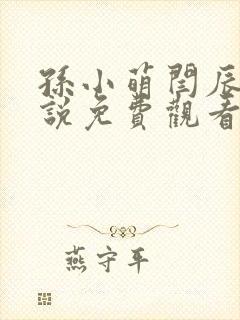 孫小萌閆辰
說免費觀看
燕守平